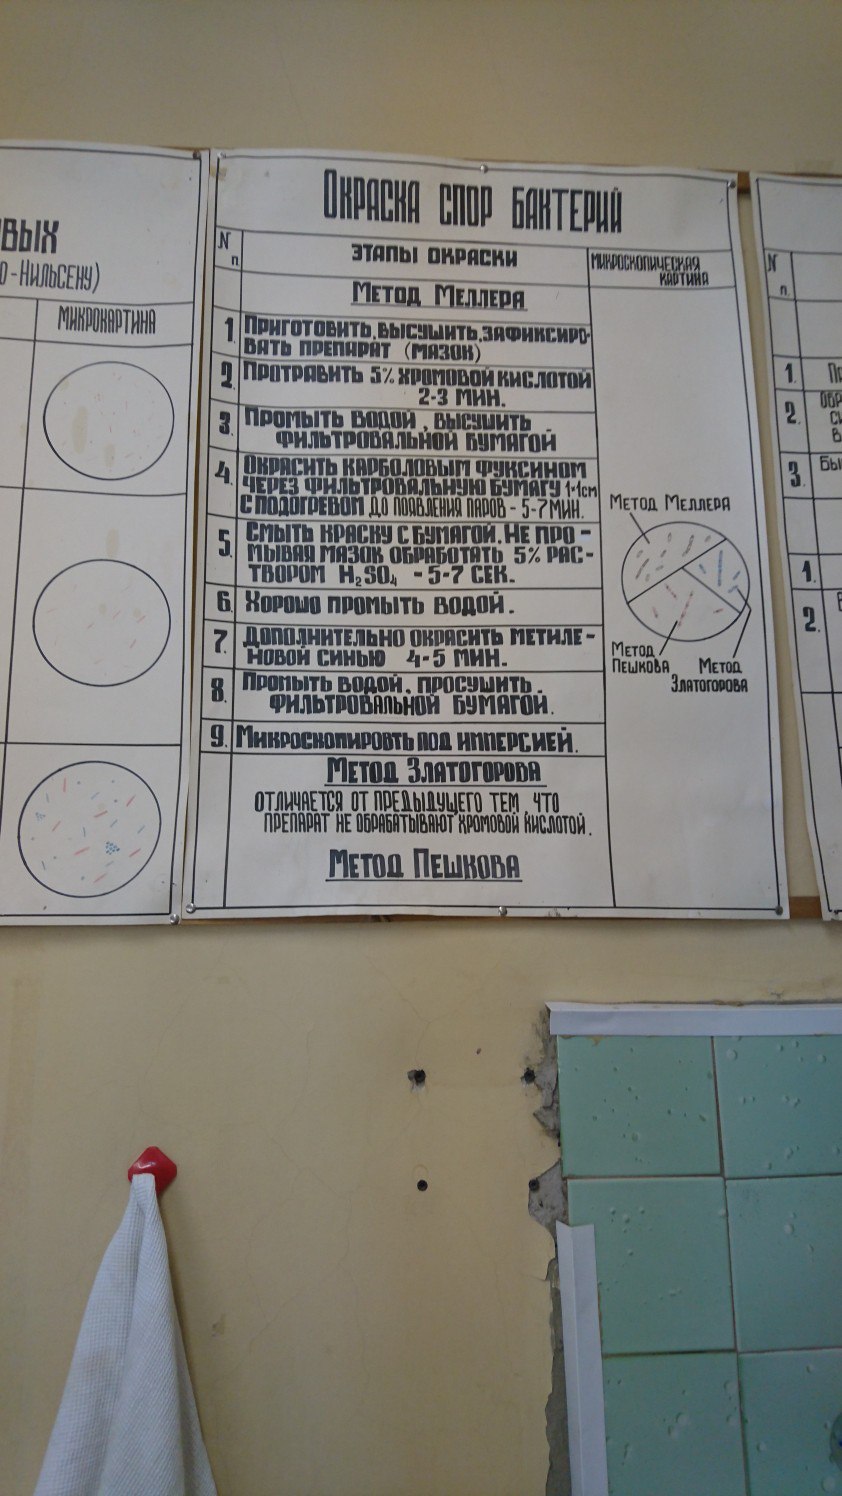 ВЫХ
О-НИЛЬСЕНУ)
МИКРОКАРТИНА
ОКРАСКА СПОР БАКТЕРИЙ
N п.
ЭТАПЫ ОКРАСКИ
МИКРОСКОПИЧЕСКАЯ
КАРТИНА
МЕТОД МЕЛЛЕРА
1. ПРИГОТОВИТЬ, ВЫСУШИТЬ, ЗАФИКСИРО-
ВАТЬ ПРЕПАРАТ (МАЗОК)
2. ПРОТРАВИТЬ 5% ХРОМОВОЙ КИСЛОТОЙ
2-3 МИН.
3. ПРОМЫТЬ ВОДОЙ, ВЫСУШИТЬ
ФИЛЬТРОВАЛЬНОЙ БУМАГОЙ
4. ОКРАСИТЬ КАРБОЛОВЫМ ФУКСИНОМ
ЧЕРЕЗ ФИЛЬТРОВАЛЬНУЮ БУМАГУ 1×1см
С ПОДОГРЕВОМ ДО ПОЯВЛЕНИЯ ПАРОВ - 5-7 МИН.
5. СМЫТЬ КРАСКУ С БУМАГОЙ. НЕ ПРО-
МЫВАЯ МАЗОК ОБРАБОТАТЬ 5% РАС-
ТВОРОМ H₂SO₄ - 5-7 СЕК.
6. ХОРОШО ПРОМЫТЬ ВОДОЙ.
7. ДОПОЛНИТЕЛЬНО ОКРАСИТЬ МЕТИЛЕ-
НОВОЙ СИНЬЮ 4-5 МИН.
8. ПРОМЫТЬ ВОДОЙ, ПРОСУШИТЬ
ФИЛЬТРОВАЛЬНОЙ БУМАГОЙ.
9. МИКРОСКОПИРОВТЬ ПОД ИММЕРСИЕЙ.
МЕТОД ЗЛАТОГОРОВА
ОТЛИЧАЕТСЯ ОТ ПРЕДЫДУЩЕГО ТЕМ, ЧТО
ПРЕПАРАТ НЕ ОБРАБАТЫВАЮТ ХРОМОВОЙ КИСЛОТОЙ.
МЕТОД ПЕШКОВА
МЕТОД МЕЛЛЕРА
МЕТОД
ПЕШКОВА
МЕТОД
ЗЛАТОГОРОВА
N п.
1.
2. ОБР
3. БЫ
1.
2.